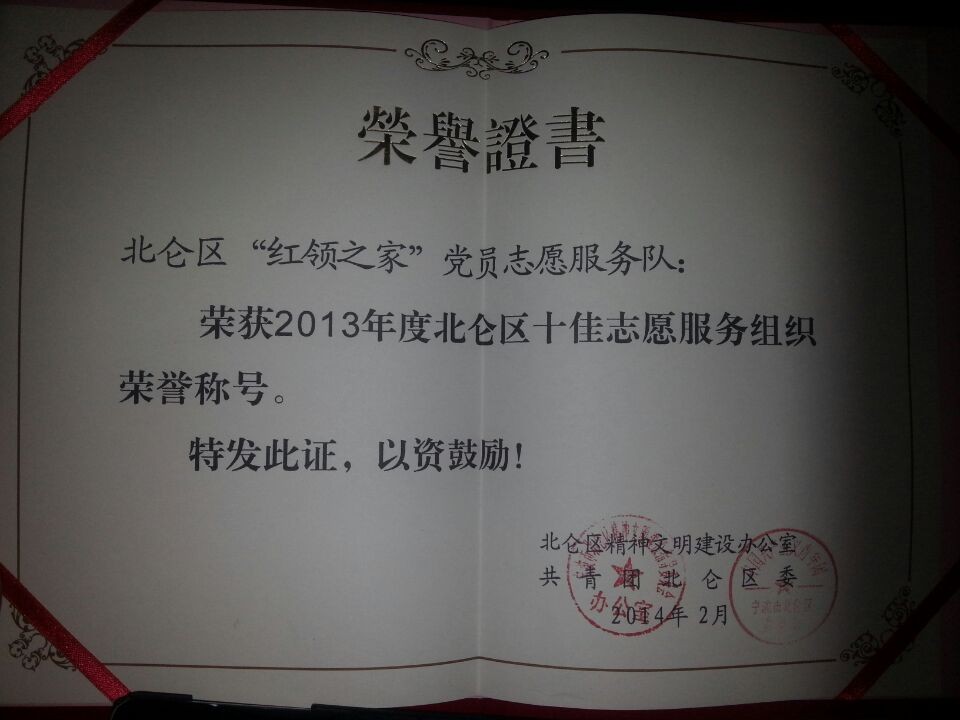 榮譽證書
北仑区“红领之家”党员志愿服务队：
荣获2013年度北仑区十佳志愿服务组织
荣誉称号。
特发此证，以资鼓励！
北仑区精神文明建设办公室
共青团北仑区委
2014年2月
办公室
宁波市北仑区